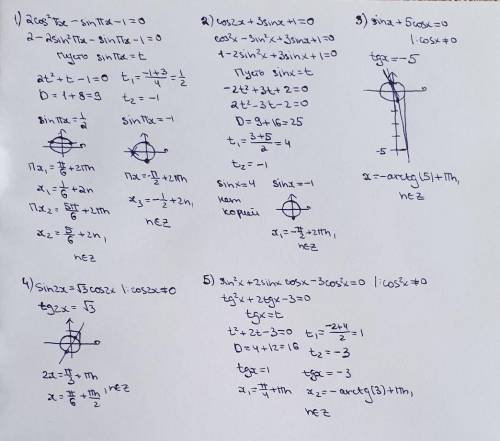 1) 2cos²πx − sinπx − 1 = 0
2 − 2sin²πx − sinπx − 1 = 0
Пусть sinπx = t
2t² + t − 1 = 0   t₁ = (−1+3)/4 = 1/2
D = 1 + 8 = 9   t₂ = −1
sinπx = 1/2   sinπx = −1
πx₁ = π/6 + 2πn   πx = −π/2 + 2πn
x₁ = 1/6 + 2n   x₃ = −1/2 + 2n,
πx₂ = 5π/6 + 2πn   n∈Z
x₂ = 5/6 + 2n,
n∈Z
2) cos2x + 3sinx + 1 = 0
cos²x − sin²x + 3sinx + 1 = 0
1 − 2sin²x + 3sinx + 1 = 0
Пусть sinx = t
−2t² + 3t + 2 = 0
2t² − 3t − 2 = 0
D = 9 + 16 = 25
t₁ = (3+5)/2 = 4
t₂ = −1
sinx = 4   sinx = −1
нет
корней
x₁ = −π/2 + 2πn,
n∈Z
3) sinx + 5cosx = 0
|: cosx ≠ 0
tgx = −5
−5
x = −arctg(5) + πn,
n∈Z
4) sin2x = √3 cos2x |: cos2x ≠ 0
tg2x = √3
2x = π/3 + πn
x = π/6 + πn/2, n∈Z
5) sin²x + 2sinx cosx − 3cos²x = 0 |: cos²x ≠ 0
tg²x + 2tgx − 3 = 0
tgx = t
t² + 2t − 3 = 0   t₁ = (−2+4)/2 = 1
D = 4 + 12 = 16   t₂ = −3
tgx = 1   tgx = −3
x₁ = π/4 + πn   x₂ = −arctg(3) + πn,
n∈Z